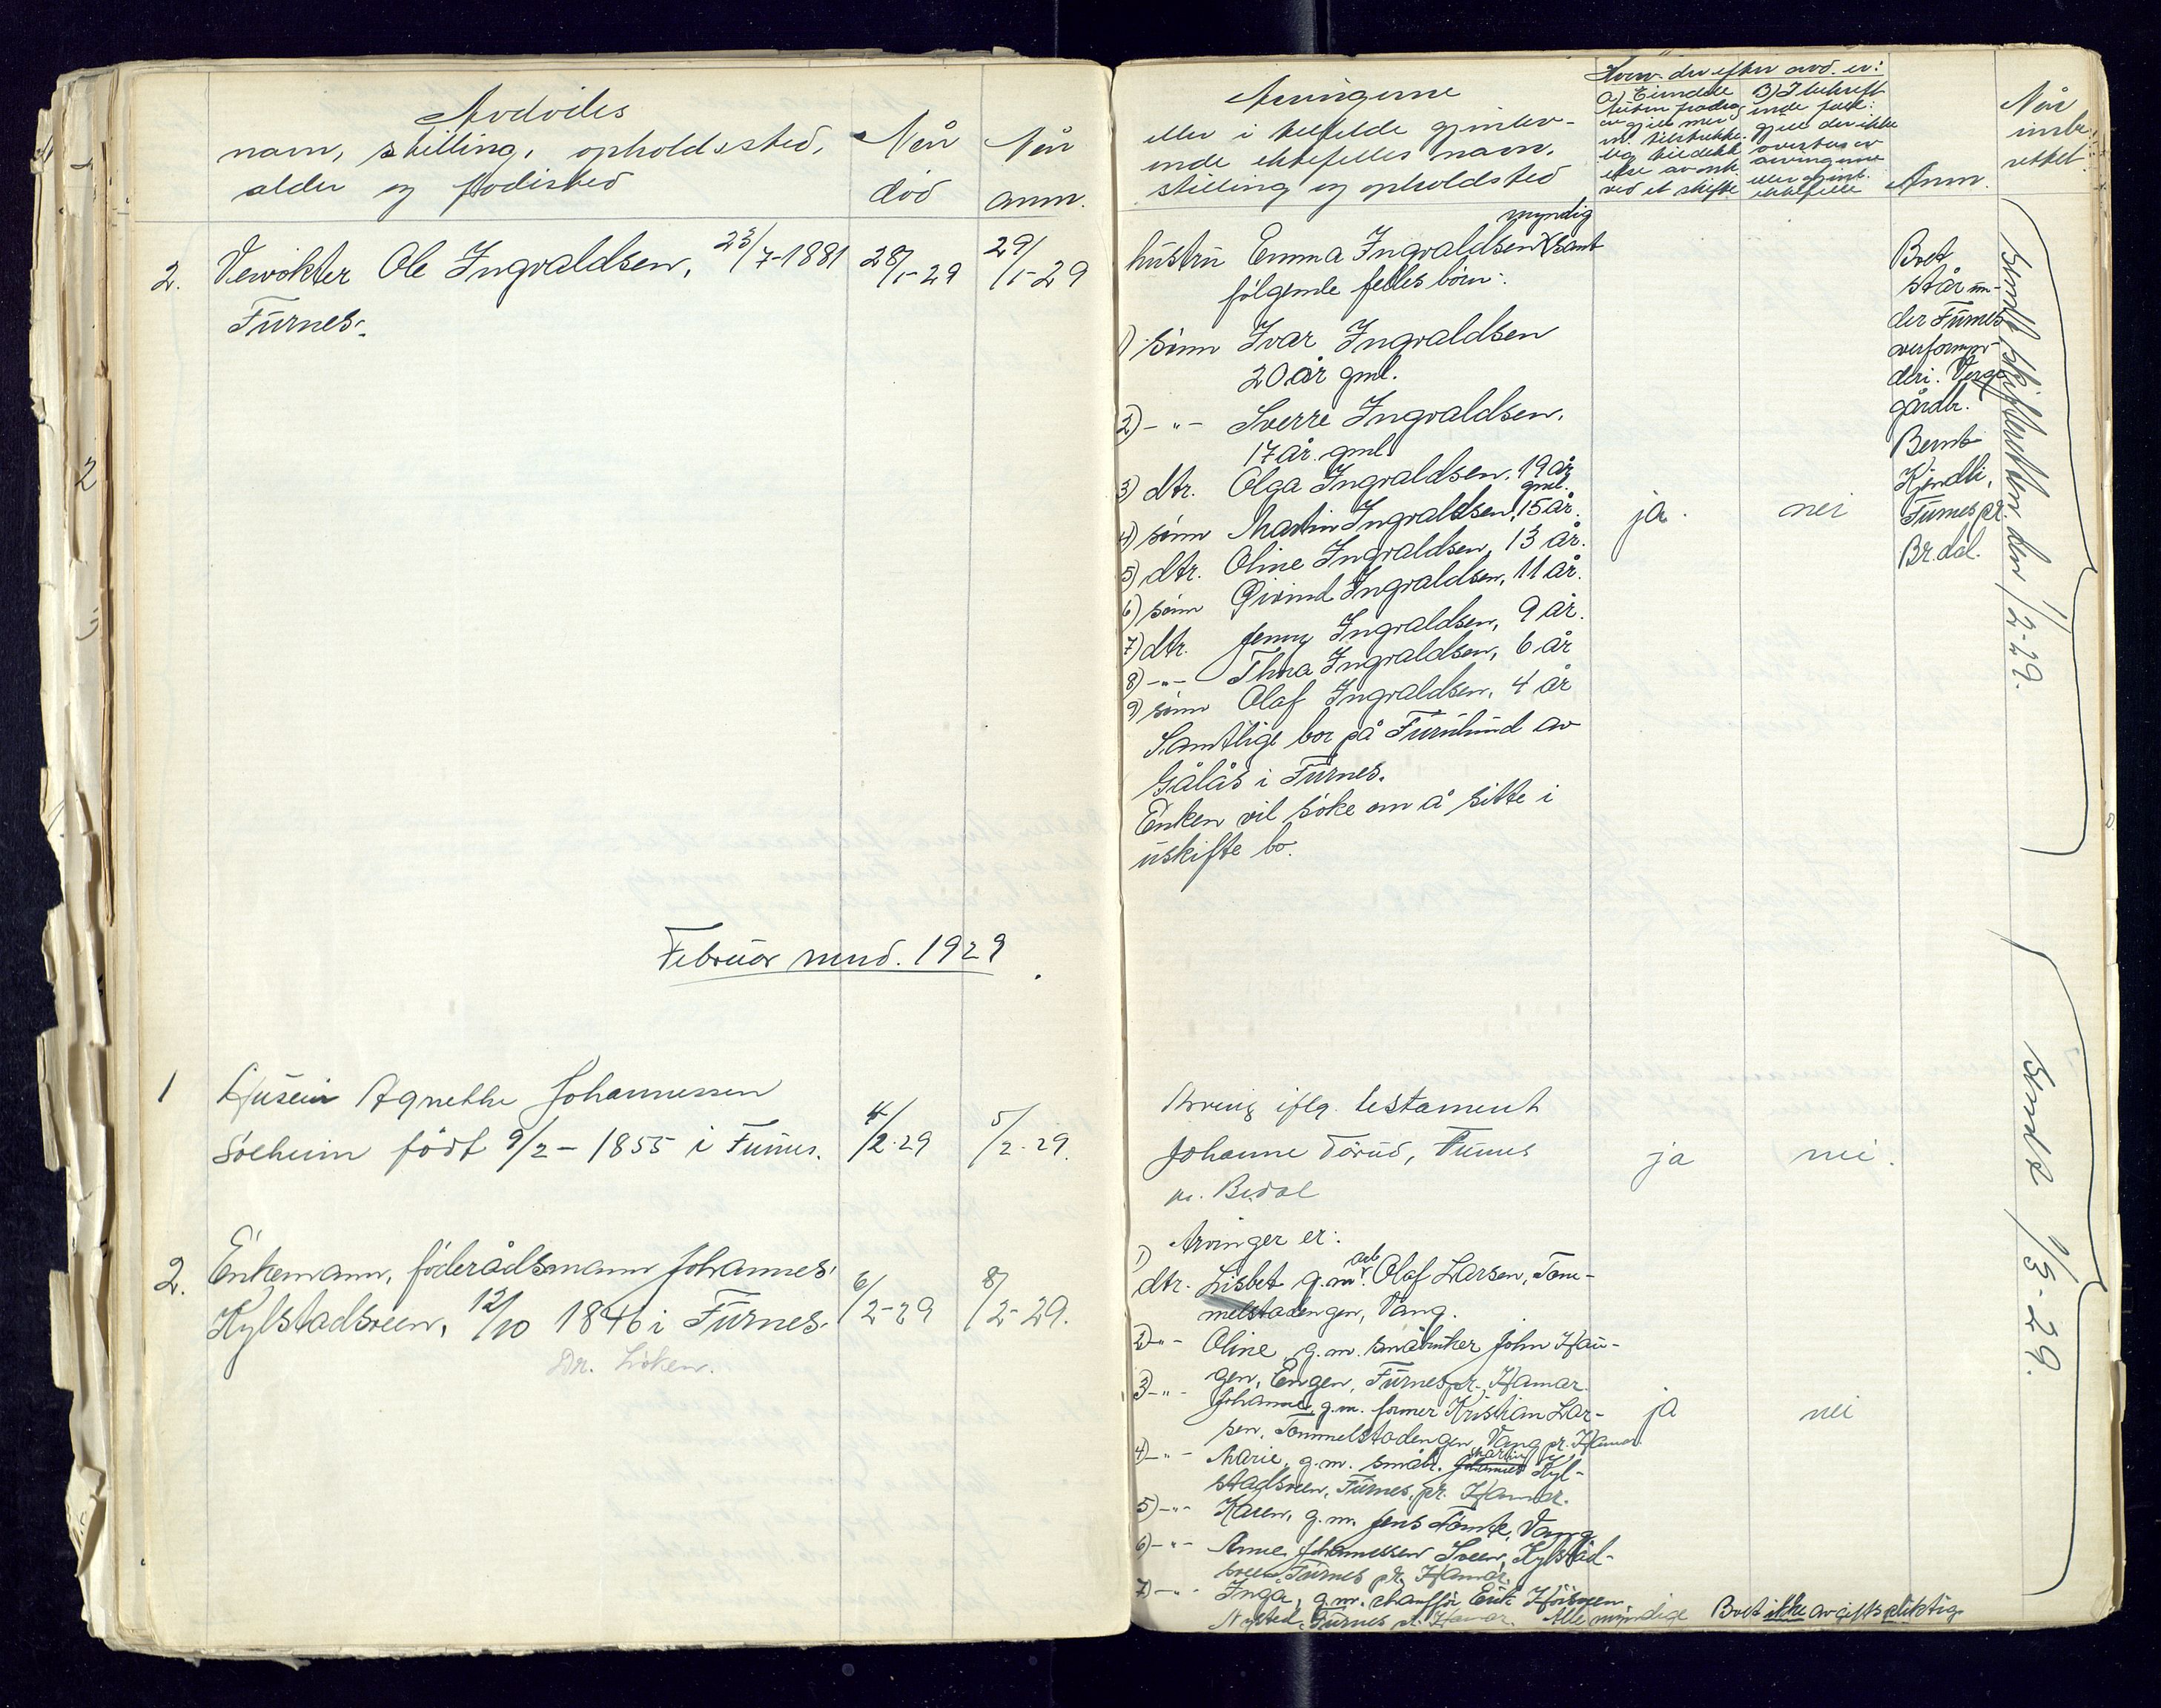 Avdødes
navn, stilling, opholdssted,
alder og fødested
Når
død
Når
anm.
2. Veivokter Ole Ingvaldsen, 23/7-1881
Furnes.
28/1-29
29/1-29
Februar mnd. 1929
1 Husein Agnethe Johannessen
Solheim født 9/2-1855 i Furnes.
4/2-29
5/2-29.
2. Enkemann, føderådsmann Johannes
Kylstadsveen, 12/10 1846 i Furnes.
Dr. Løken.
6/2-29
8/2-29.
Arvingerne
eller i tilfelde gjenlev-
ende ektefelles navn,
stilling og opholdsted
Hvorv. der efter avd. er:
a) Eiendele
B)
ved et skifte
ektefelle
Anm.
Når
innbe-
rettet
hustru Emma Ingvaldsen myndig samt
følgende felles børn:
1) sønn Ivar Ingvaldsen
20 år gml.
2) -"- Sverre Ingvaldsen,
17 år gml.
3) dtr. Olga Ingvaldsen, 19 år gml.
4) sønn Martin Ingvaldsen, 15 år.
5) dtr. Oline Ingvaldsen, 13 år.
6) sønn Øivind Ingvaldsen, 11 år.
7) dtr. Jenny Ingvaldsen, 9 år.
8) -"- Thea Ingvaldsen, 6 år
9) sønn Olaf Ingvaldsen, 4 år
Samtlige bor på Furulund av
Gålås i Furnes.
Enken vil søke om å sitte i
uskifte bo.
ja.
nei
Boet
står un-
der Furnes
overformyn-
deri. Verge
gårdbr.
Bernt
Kjendli,
Furnes pr.
Br.dal.
Sendt skifteretten den 1/2-29.
Arving iflg. testament
Johanne Törud, Furnes
pr. Brdal
ja
nei.
Arvinger er:
1) dtr. Lisbet g.m. arb. Olaf Larsen, Tom-
melstadengen, Vang.
2) -"- Oline g.m. småbruker John Hau-
gen, Engen, Furnes pr. Hamar.
3) -"- Johanne, g.m. former Kristian Lar-
sen, Tommelstadengen, Vang pr. Hamar.
4) -"- Marie, g.m. småbr. Martin Kyl-
stadsveen, Furnes, pr. Hamar.
5) -"- Karen, g.m. Jens Tomte, Vang
6) -"- Anne Johannessen Sveen, Kylstad-
sveen, Furnes pr. Hamar.
7) -"- Inga, g.m. chauffør Erik
Nysted, Furnes pr. Hamar. Alle myndige Boet ikke avgiftspliktig
ja
nei
Sendt 1/3-29.